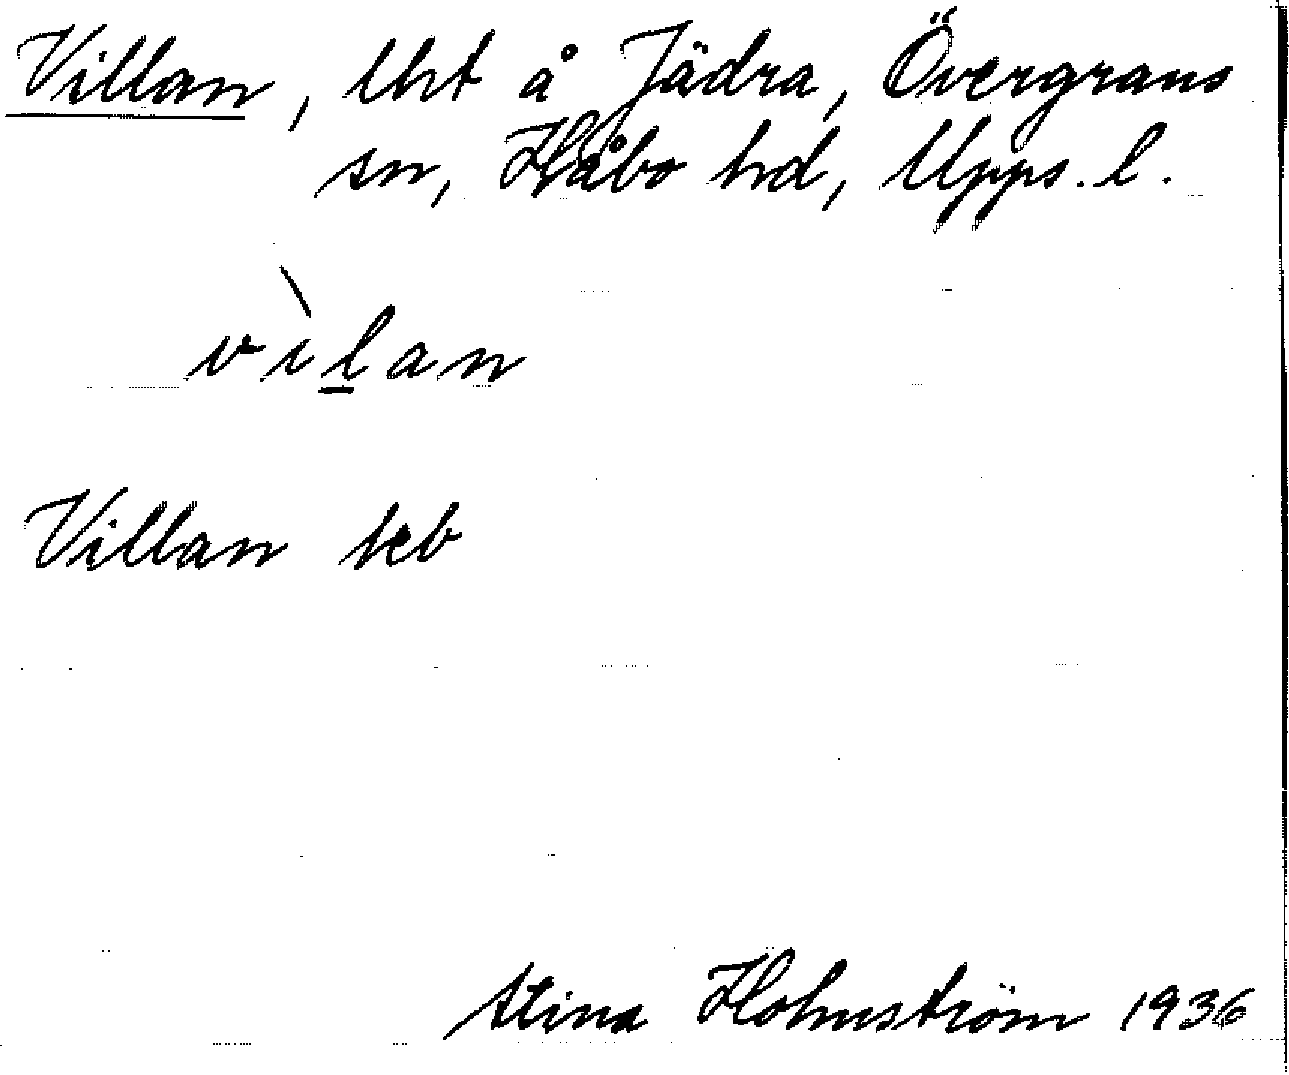 Villan, lht å Jädra, Övergrans
sn, Håbo hd, Upps. l.
vìlan
Villan keb
Stina Holmström 1936